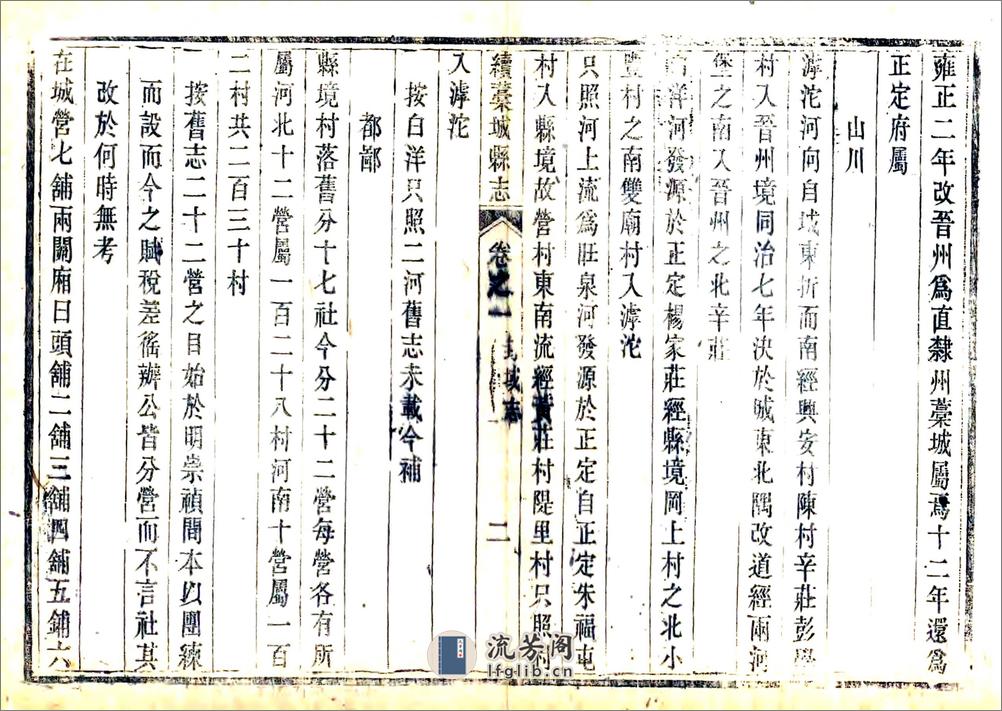 雍正二年改晉州爲直隸州藁城屬焉十二年還爲
正定府屬
山川
滹沱河向自城東折而南經興安村陳村辛莊彭學
村入晉州境同治七年決於城東北隅改道經兩河
堡之南入晉州之北辛莊
白洋河發源於正定楊家莊經縣境岡上村之北小
豐村之南雙廟村入滹沱
只照河上流爲旺泉河發源於正定自正定朱福屯
村入縣境故營村東南流經黃莊村隄里村只照村
續藁城縣志 卷之一 封域志 二
入滹沱
按白洋只照二河舊志未載今補
都鄙
縣境村落舊分十七社今分二十二營每營各有所
屬河北十二營屬一百二十八村河南十營屬一百
二村共二百三十村
按舊志二十二營之目始於明崇禎間本以團練
而設而今之賦稅差徭辦公皆分營而不言社其
改於何時無考
在城營七舖兩關廂曰頭舖二舖三舖四舖五舖六
流芳阁
lfglib.cn